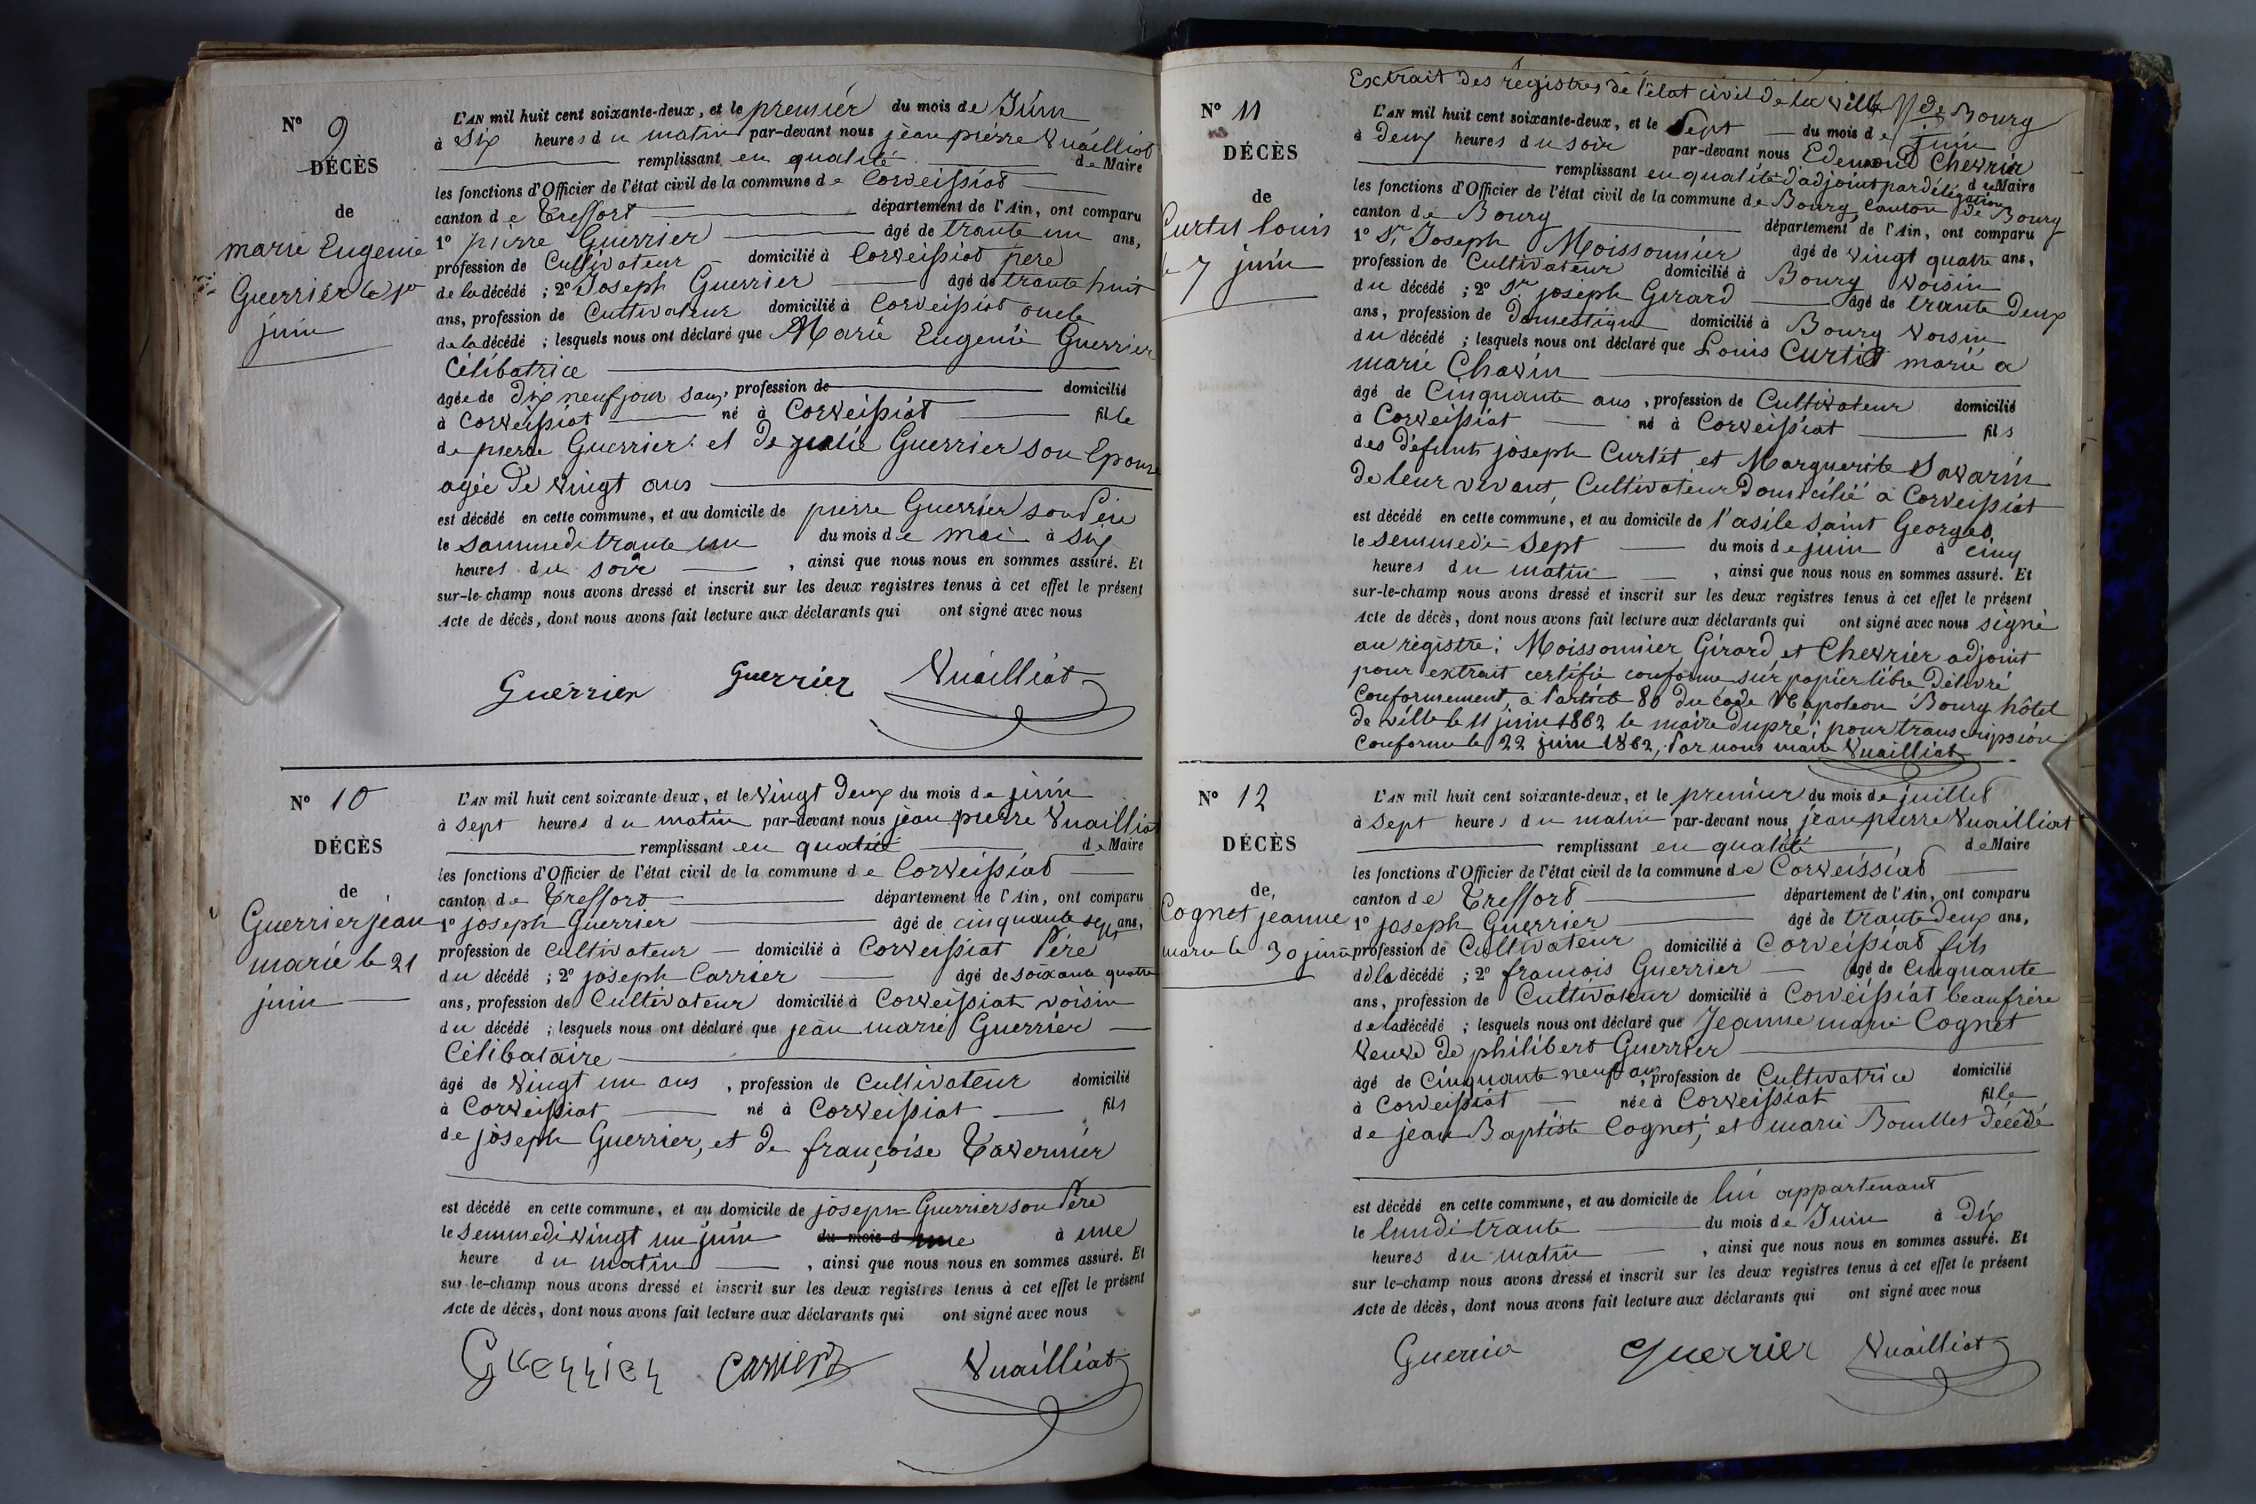 N° 9
DÉCÈS
de
marie Eugenie
Guerrier le 1er
juin
L'AN mil huit cent soixante-deux, et le premiér du mois de Juin
à Six heures du matin par-devant nous jèan pierre Vuailliat
remplissant en qualité de Maire
les fonctions d'Officier de l'état civil de la commune de Corveissiat
canton de Treffort département de l'Ain, ont comparu
1° pierre Guerrier âgé de trante un ans,
profession de Cultivateur domicilié à Corveissiat pere
de la décédé ; 2° Joseph Guerrier âgé de trante huit
ans, profession de Cultivateur domicilié à Corveissiat oncle
de la décédé ; lesquels nous ont déclaré que Marie Eugenie Guerrier
Célibatrice
âgée de dix neuf jour , profession de domicilié
à Corveissiat né à Corveissiat fille
de pierre Guerrier et de julie Guerrier son Epouse
agée de vingt ans
est décédé en cette commune, et au domicile de pierre Guerrier son Père
le sammedi trante un du mois de mai à six
heures du soir , ainsi que nous nous en sommes assuré. Et
sur-le-champ nous avons dressé et inscrit sur les deux registres tenus à cet effet le présent
Acte de décès, dont nous avons fait lecture aux déclarants qui ont signé avec nous
Guerrier Guerrier Vuailliat
N° 10
DÉCÈS
de
Guerrier jean
marie le 21
juin
L'AN mil huit cent soixante-deux, et le vingt deux du mois de juin
à sept heures du matin par-devant nous jèan pierre Vuailliat
remplissant en qualité de Maire
les fonctions d'Officier de l'état civil de la commune de Corveissiat
canton de Treffort département de l'Ain, ont comparu
1° joseph Guerrier âgé de cinquante sept ans,
profession de cultivateur domicilié à Corveissiat Père
du décédé ; 2° joseph Carrier âgé de soixante quatre
ans, profession de Cultivateur domicilié à Corveissiat voisin
du décédé ; lesquels nous ont déclaré que jean marie Guerrier
Célibataire
âgé de vingt un ans , profession de Cultivateur domicilié
à Corveissiat né à Corveissiat fils
de joseph Guerrier, et de françoise Tavernier
est décédé en cette commune, et au domicile de joseph Guerrier son Père
le semmedi vingt un juin du mois d à une
heure du matin , ainsi que nous nous en sommes assuré. Et
sur le-champ nous avons dressé et inscrit sur les deux registres tenus à cet effet le présent
Acte de décès, dont nous avons fait lecture aux déclarants qui ont signé avec nous
Guerrier Carrier Vuailliat
Extrait des registres de l'état civil de la ville de Bourg
N° 11
DÉCÈS
de
Curtet Louis
le 7 juin
L'AN mil huit cent soixante-deux, et le sept du mois de juin
à deux heures du soir par-devant nous Edemond Chevrier
remplissant en qualité d'adjoint par délégation du Maire
les fonctions d'Officier de l'état civil de la commune de Bourg, Canton de Bourg
canton de Bourg département de l'Ain, ont comparu
1° Sr Joseph Moissonnier âgé de vingt quatre ans,
profession de Cultivateur domicilié à Bourg voisin
du décédé ; 2° Sr joseph Girard âgé de trante deux
ans, profession de domestique domicilié à Bourg voisin
du décédé ; lesquels nous ont déclaré que Louis Curtet marié a
marie Chavin
âgé de Cinquante ans , profession de Cultivateur domicilié
à Corveissiat né à Corveissiat fils
des défunts joseph Curtet et Marguerite Savarin
de leur vivant Cultivateur Domicilié à Corveissiat
est décédé en cette commune, et au domicile de l'asile Saint Georges
le semmedi sept du mois de juin à cinq
heures du matin , ainsi que nous nous en sommes assuré. Et
sur-le-champ nous avons dressé et inscrit sur les deux registres tenus à cet effet le présent
Acte de décès, dont nous avons fait lecture aux déclarants qui ont signé avec nous signé
au registre ; Moissonnier Girard et Chevrier adjoint
pour extrait certifié conforme sur papier libre Délivré
Conformement, a l'article 80 du code Napoleon Bourg hôtel
de ville le 11 juin 1862 le maire Dupré ; pour transcripsion
Conforme le 22 juin 1862, Par nous maire Vuailliat
N° 12
DÉCÈS
de
Cognet jeanne
marie le 30 juin
L'AN mil huit cent soixante-deux, et le premier du mois de juillet
à sept heures du matin par-devant nous jean pierre Vuailliat
remplissant en qualité de Maire
les fonctions d'Officier de l'état civil de la commune de Corveissiat
canton de Treffort département de l'Ain, ont comparu
1° joseph Guerrier âgé de trante deux ans,
profession de Cultivateur domicilié à Corveissiat fils
de la décédé ; 2° francois Guerrier âgé de Cinquante
ans, profession de Cultivateur domicilié à Corveissiat beaufrère
de la décédé ; lesquels nous ont déclaré que Jeanne marie Cognet
veuve de philibert Guerrier
âgé de Cinquante neuf an , profession de Cultivatrice domicilié
à Corveissiat née à Corveissiat fille
de jean Baptiste Cognet, et marie Bouillet Décédé
est décédé en cette commune, et au domicile de lui appartenant
le lundi trante du mois de Juin à Dix
heures du matin , ainsi que nous nous en sommes assuré. Et
sur le-champ nous avons dressé et inscrit sur les deux registres tenus à cet effet le présent
Acte de décès, dont nous avons fait lecture aux déclarants qui ont signé avec nous
Guerrier Guerrier Vuailliat